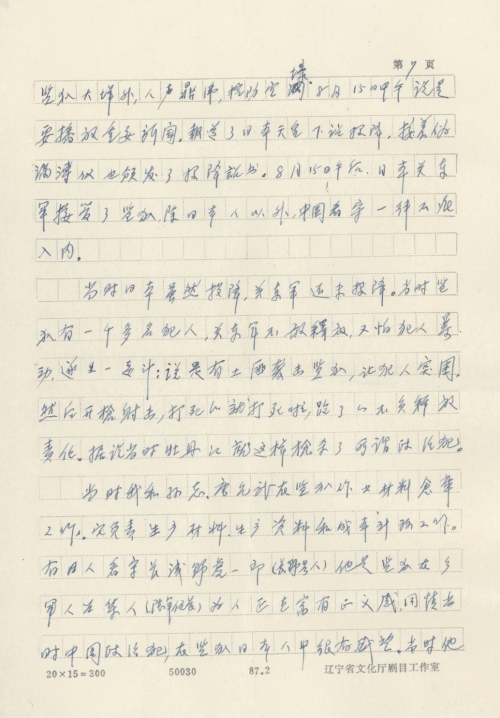 第 7 页
监狱大墙外,人声鼎沸,挖防空壕 8月15日中午说是
要播放重要新闻。报道了日本天皇下诏投降。接着伪
满溥仪也颁发了投降诏书。8月15日午后,日本关东
军接管了监狱,除日本人以外,中国看守一律不准
入内。
当时日本虽然投降,关东军还未投降。当时监
狱有一千多名犯人,关东军不敢释放,又怕犯人暴
动,遂生一毒计:说是有土匪袭击监狱,让犯人突围。
然后开枪射击,打死的就打死啦,跑了的不负释放
责任。据说当时牡丹江就这样枪杀了所谓政治犯。
当时我和孙志。唐允武在监狱作业材料仓库
工作。负责生产材料、生产资料和成本计算工作。
有日人名字长浅野虎一郎(长野县人)他是监狱在乡
军人左禁人为人正直富有正义感,同情当
时中国政治犯,在监狱日本人中很有威望。当时他
20×15=300 50030 87.2 辽宁省文化厅剧目工作室